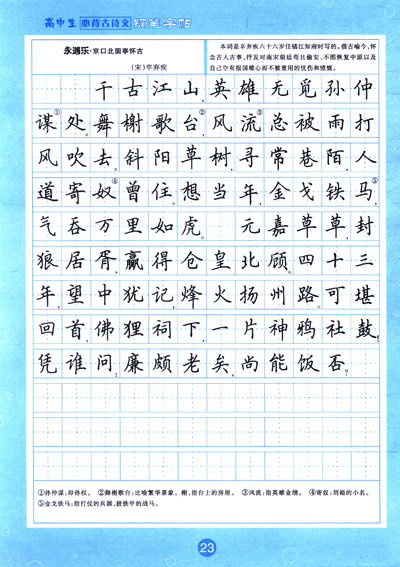 高中生 必背古诗文 钢笔字帖
永遇乐·京口北固亭怀古
(宋)辛弃疾
本词是辛弃疾六十六岁任镇江知府时写的。借古喻今,怀
念古人古事,抒发对南宋朝廷苟且偷安、不图恢复中原以及
自己空有报国雄心而不被重用的忧伤和愤慨。
千古江山,英雄无觅孙仲
谋①处。舞榭歌台②,风流③总被雨打
风吹去。斜阳草树,寻常巷陌,人
道寄奴④曾住。想当年,金戈铁马⑤,
气吞万里如虎。 元嘉草草,封
狼居胥,赢得仓皇北顾。四十三
年,望中犹记,烽火扬州路。可堪
回首,佛狸祠下,一片神鸦社鼓。
凭谁问:廉颇老矣,尚能饭否?
①孙仲谋:即孙权。 ②舞榭歌台:比喻繁华景象。榭,指台上的房屋。 ③风流:指英雄业绩。 ④寄奴:刘裕的小名。
⑤金戈铁马:指打仗的兵器,披铁甲的战马。
23